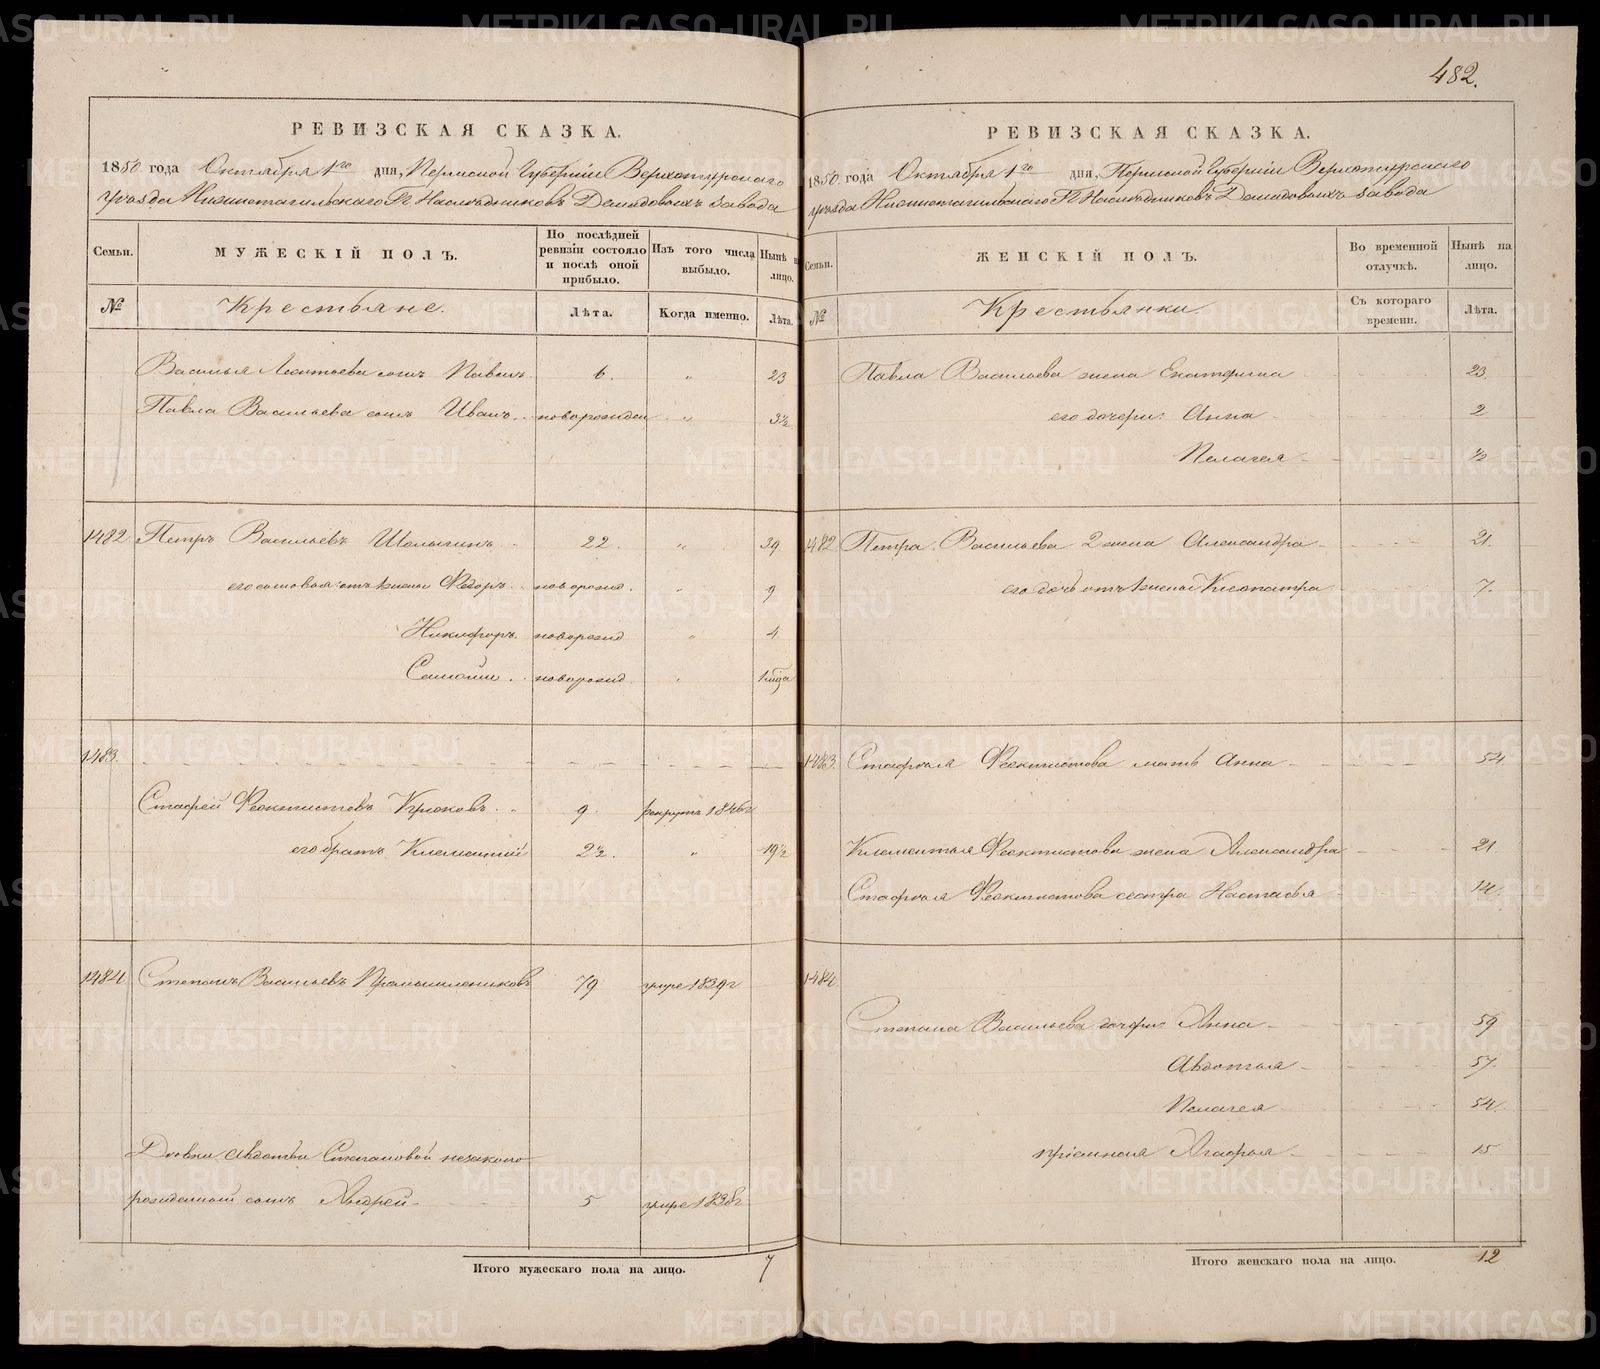 482.
РЕВИЗСКАЯ СКАЗКА.
1850 года Октября 1го дня, Пермской Губерніи Верхотурскаго
уѣзда Нижнетагильскаго Гг Наслѣдниковъ Демидовыхъ завода
Семьи.
МУЖЕСКІЙ ПОЛЪ.
По послѣдней ревизіи состояло и послѣ оной прибыло.
Изъ того числа выбыло.
Нынѣ н лицо.
№
Крестьяне.
Лѣта.
Когда именно.
Лѣта.
Василья Леонтьева сынъ Павелъ 6. " 23
Павла Васильева сынъ Иванъ новорожден " 3½
1482 Петръ Васильевъ Шалыгинъ 22. " 39
его сыновья: отъ 1 жены Ѳедоръ новорожд. " 9
Никифоръ новорожд " 4
Самойли новорожд "
1483.
Стафѣй Феоктистовъ Крюковъ 9. рекрутъ 1846г
его братъ Климентій 2½. " 19½
1484. Степанъ Васильевъ Промышлениковъ 79 умре 1839г
Дѣвки Авдотьи Степановой незаконо
рожденный сынъ Андрей 5 умре 1838г
Итого мужескаго пола на лицо. 7
РЕВИЗСКАЯ СКАЗКА.
1850 года Октября 1го дня, Пермской Губерніи Верхотурскаго
уѣзда Нижнетагильскаго Гг Наслѣдниковъ Демидовыхъ завода
Семьи.
ЖЕНСКІЙ ПОЛЪ.
Во временной отлучкѣ.
Нынѣ на лицо.
№
Крестьянки.
Съ котораго времени.
Лѣта.
Павла Васильева жена Екатерина 23.
его дочери: Анна 2
Пелагея ½
1482 Петра Васильева 2 жена Александра 21.
его дочь отъ 1 жены Клеопатра 7.
1483. Стафѣя Феоктистова мать Анна 54.
Климентья Феоктистова жена Александра 21.
Стафѣя Феоктистова сестра Настасья 14.
1484.
Степана Васильева дочери: Анна 59
Авдотья 57.
Пелагея 54.
пріемная Агафья 15
Итого женскаго пола на лицо. 12
METRIKI.GASO-URAL.RU